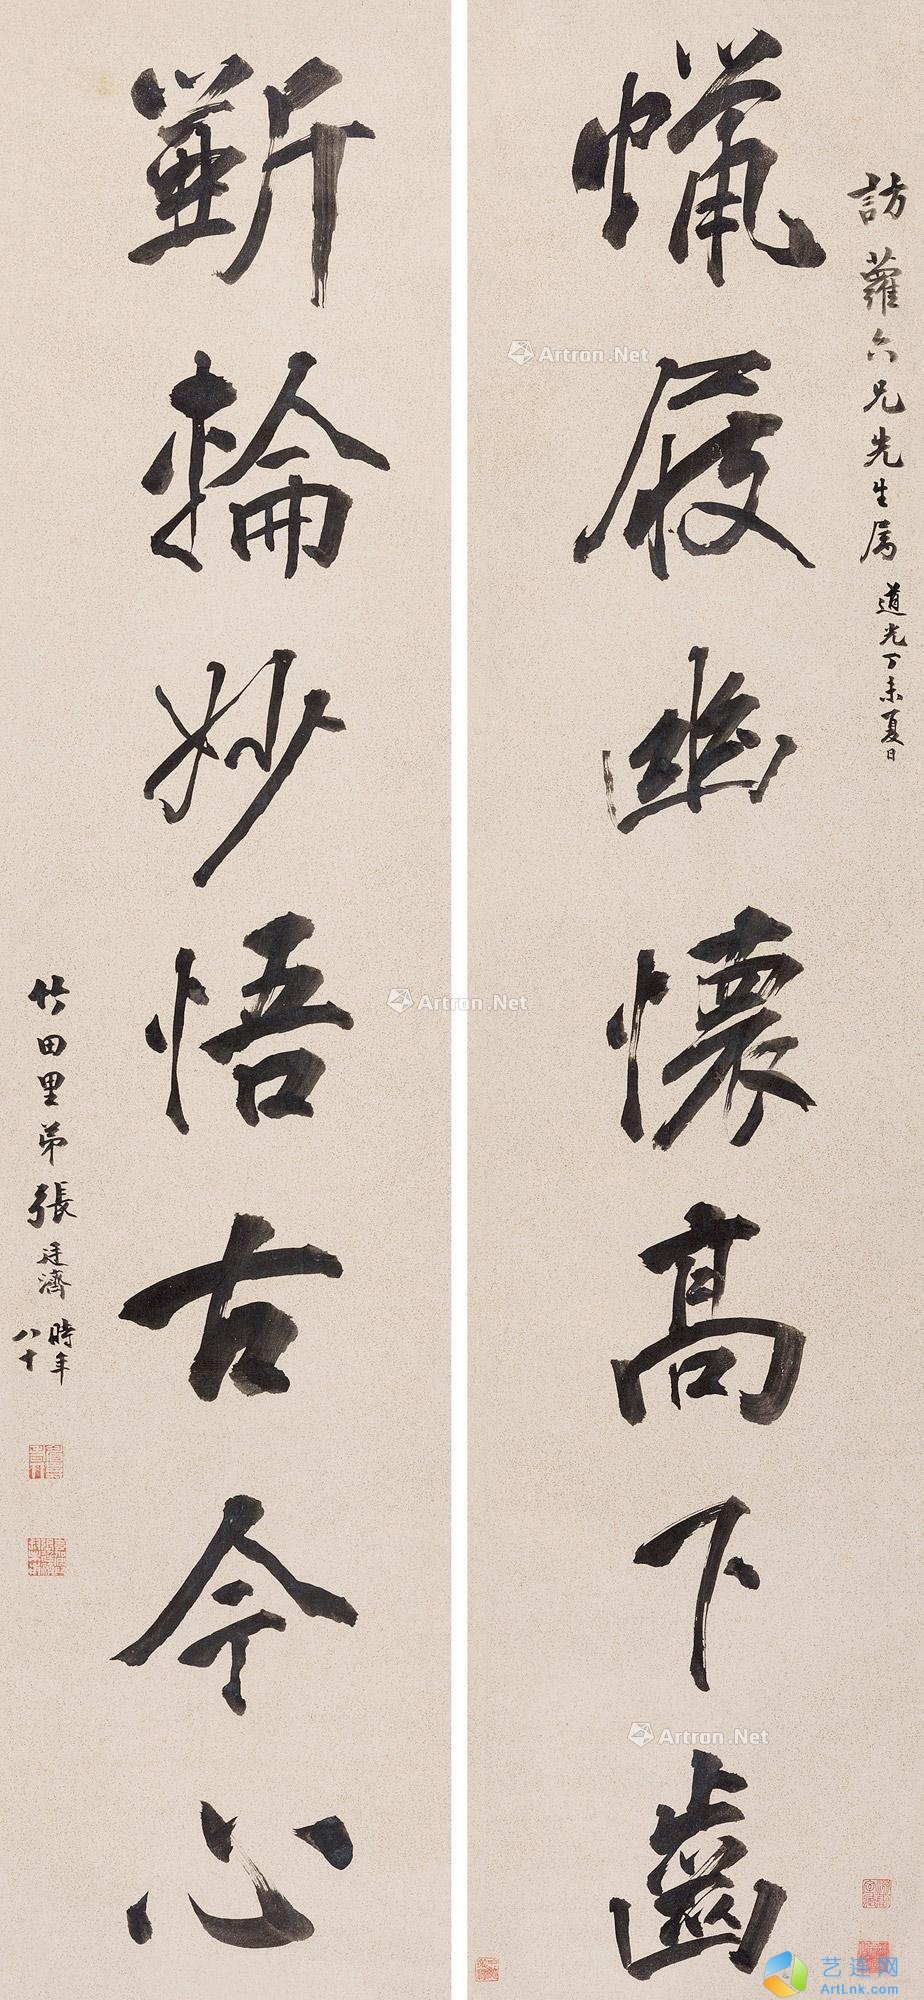 訪蘿六兄先生属 道光丁未夏日
蠟屐幽懷高下齒
斲輪妙悟古今心
竹田里弟張廷濟時年
八十
Artron.Net
Artron.Net
Artron.Net
艺连网
ArtLnk.com